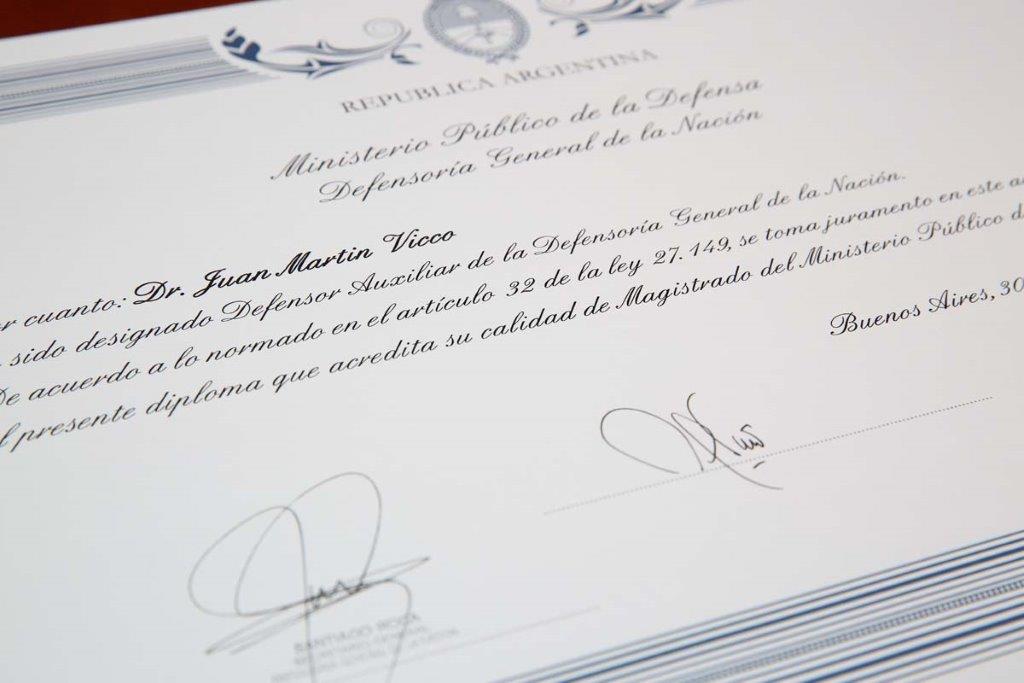 REPUBLICA ARGENTINA
Ministerio Público de la Defensa
Defensoría General de la Nación
r cuanto: Dr. Juan Martin Vicco
sido designado Defensor Auxiliar de la Defensoría General de la Nación.
De acuerdo a lo normado en el artículo 32 de la ley 27.149, se toma juramento en este a
l presente diploma que acredita su calidad de Magistrado del Ministerio Público d
Buenos Aires, 30
SANTIAGO ROCA